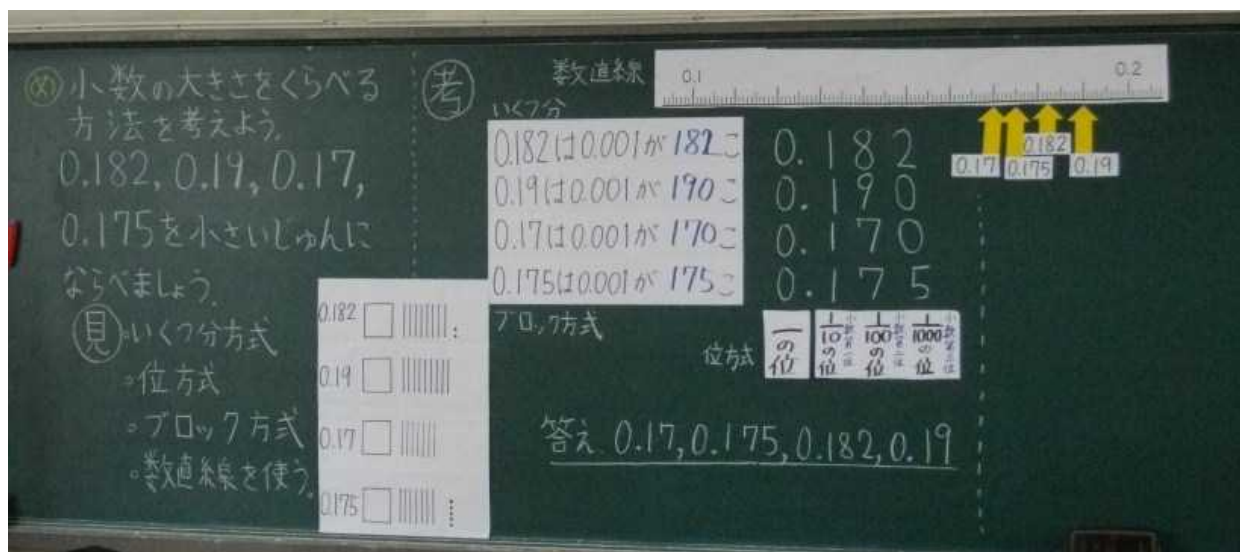 め 小数の大きさをくらべる
方法を考えよう。
0.182, 0.19, 0.17,
0.175を小さいじゅんに
ならべましょう。
見 ・いくつ分方式
・位方式
・ブロック方式
・数直線を使う。
0.182
0.19
0.17
0.175
考
数直線
0.1 0.2
0.17 0.175 0.182 0.19
いくつ分
0.182は0.001が182こ
0.19は0.001が190こ
0.17は0.001が170こ
0.175は0.001が175こ
ブロック方式
0.182
0.190
0.170
0.175
位方式
一の位
1/10の位 小数第一位
1/100の位 小数第二位
1/1000の位 小数第三位
答え 0.17, 0.175, 0.182, 0.19